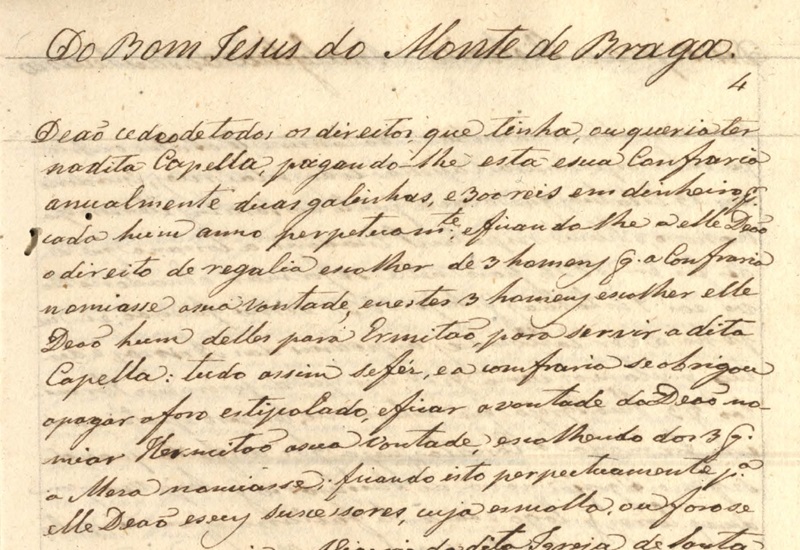 Do Bom Jesus do Monte de Braga.
4
Deaõ cedeo de todos os direitos, que tinha, ou queria ter
na dita Capella, pagando-lhe esta e sua Confraria
anualmente duas galinhas, e 300 reis em dinheiro, q.
cada hum anno perpetuam.te; e ficando lhe a elle Deaõ
o direito de regalia escolher de 3 homens q. a Confraria
nomiasse a sua vontade, e nestes 3 homens escolher elle
Deaõ hum delles para Ermitaõ, para servir a dita
Capella: tudo assim se fez, e a comfraria se obrigou
a pagar o foro estipolado, e ficar a vontade do Deaõ no-
miar Hermitaõ a sua vontade, escolhendo dos 3 q.
a Meza nomiasse; ficando isto perpectuamente p.a
elle Deaõ e seus sucessores, cuja esmolla, ou foro se
da dita Igreja de Santa